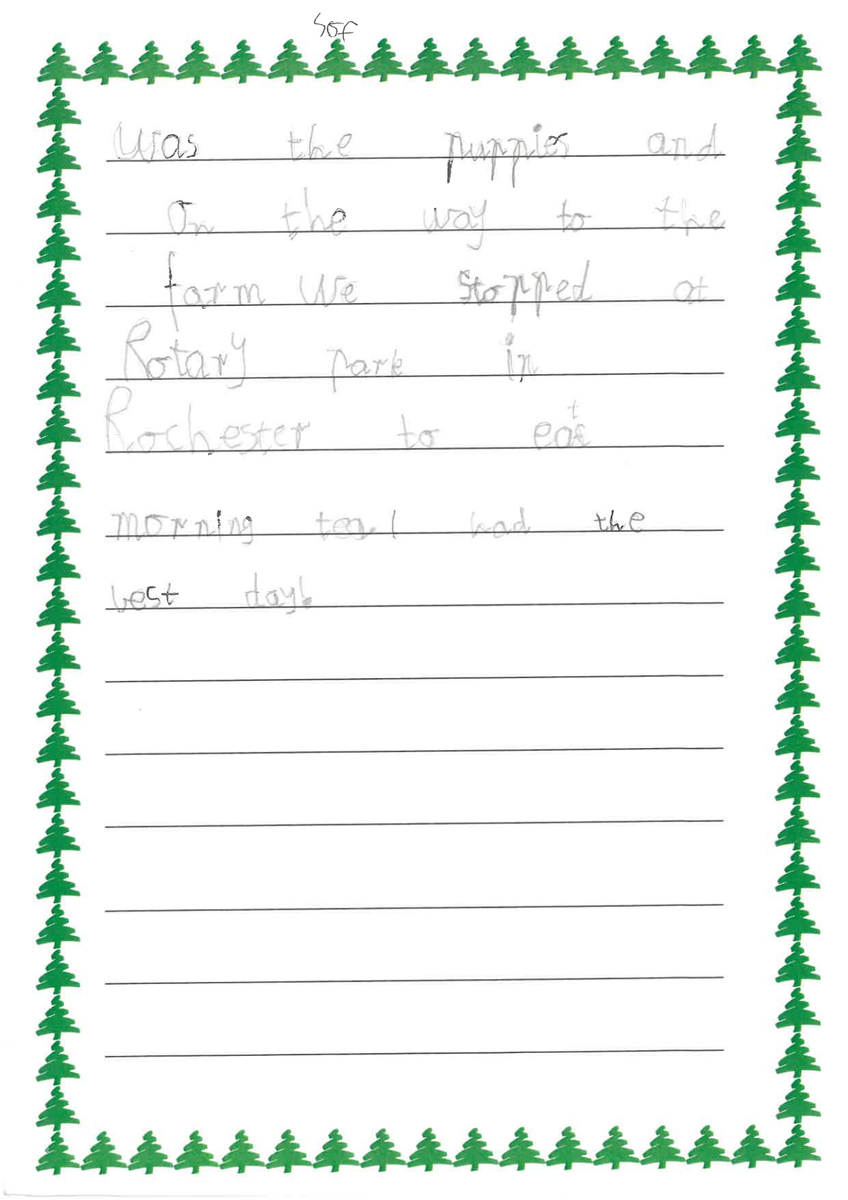 Sof
Was the puppies and
On the way to the
farm We stopped at
Rotary park in
Rochester to eat
morning tea I had the
best day!